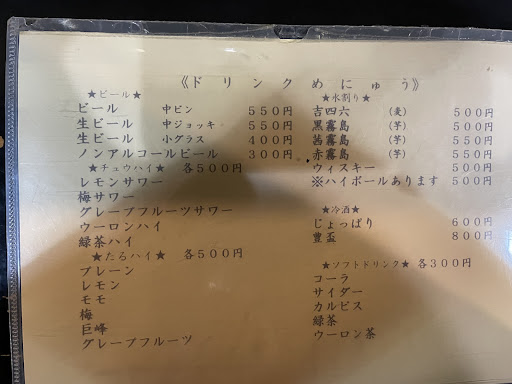 《ドリンクめにゅう》
★ビール★
ビール 中ビン 550円
生ビール 中ジョッキ 550円
生ビール 小グラス 400円
ノンアルコールビール 300円
★チュウハイ★ 各500円
レモンサワー
梅サワー
グレープフルーツサワー
ウーロンハイ
緑茶ハイ
★たるハイ★ 各500円
プレーン
レモン
モモ
梅
巨峰
グレープフルーツ
★水割り★
吉四六 (麦) 500円
黒霧島 (芋) 500円
茜霧島 (芋) 550円
赤霧島 (芋) 550円
ウィスキー 500円
※ハイボールあります 500円
★冷酒★
じょっぱり 600円
豊盃 800円
★ソフトドリンク★ 各300円
コーラ
サイダー
カルピス
緑茶
ウーロン茶